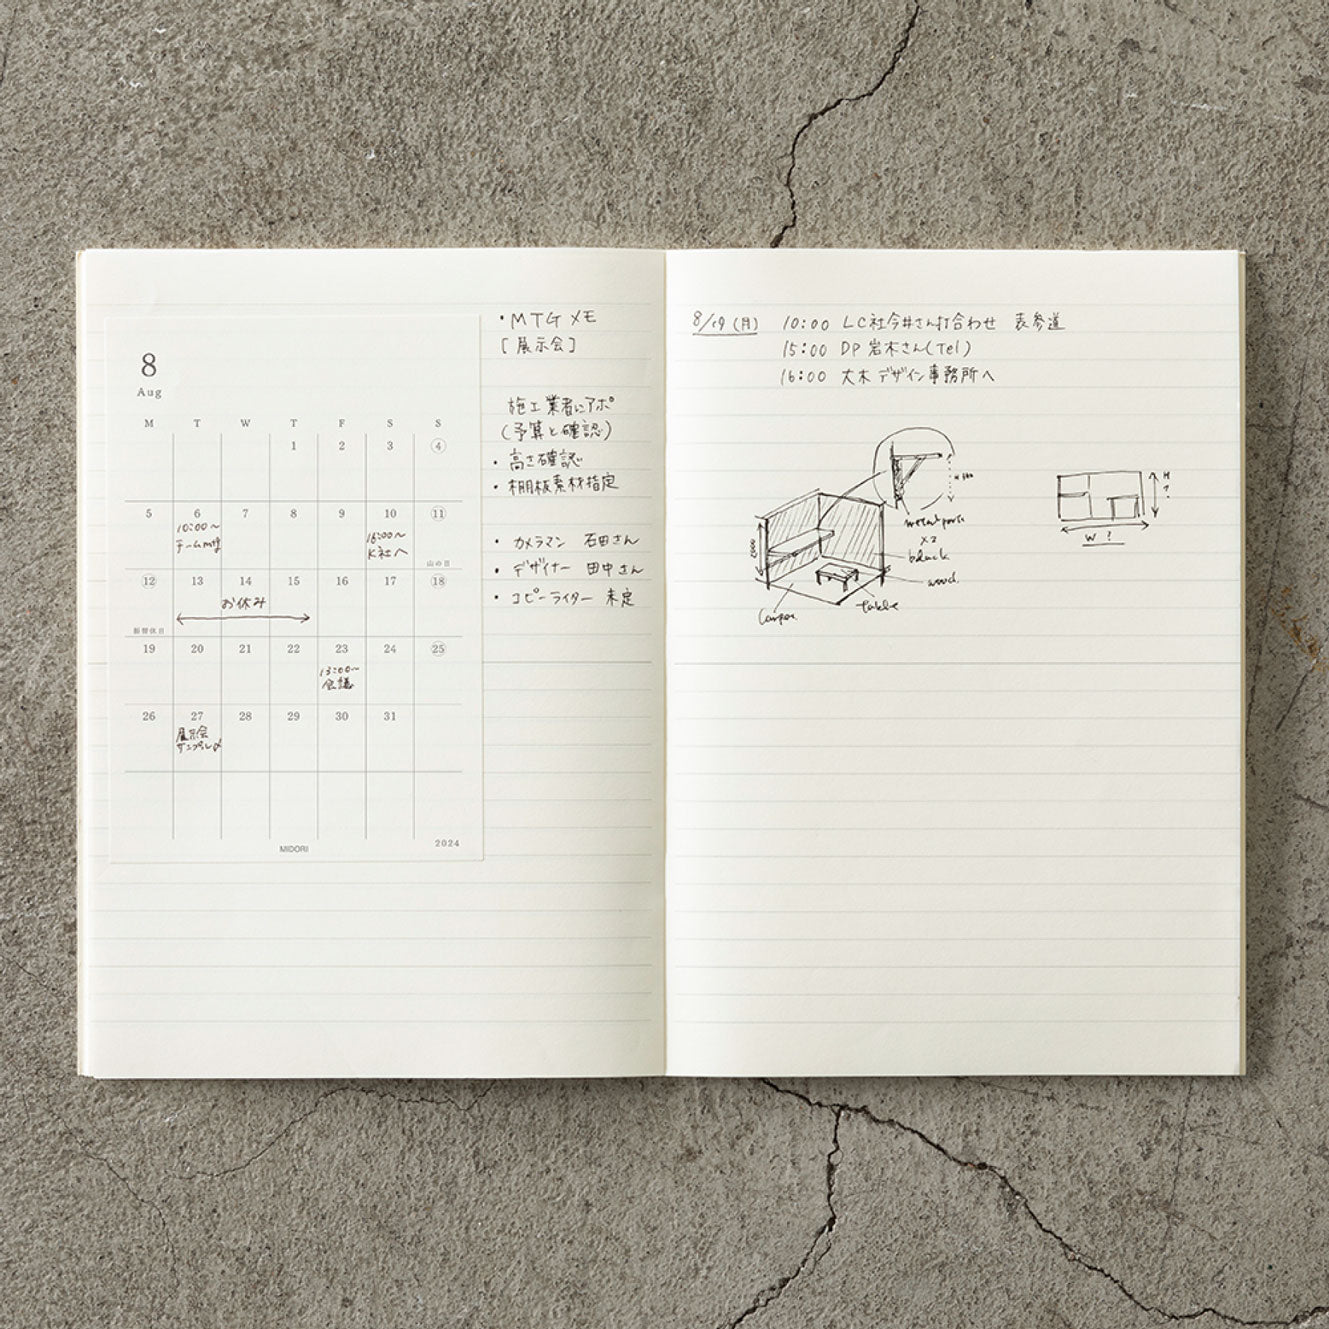 8
Aug
M T W T F S S
1 2 3 4
5 6 7 8 9 10 11
10:00〜
チームmtg
16:00〜
K社へ
山の日
12 13 14 15 16 17 18
お休み
振替休日
19 20 21 22 23 24 25
13:00〜
会議
26 27 28 29 30 31
展示会
サンプル〆
MIDORI
2024
・MTG メモ
[展示会]
施工業者にアポ
(予算と確認)
・高さ確認
・棚板素材指定
・カメラマン 石田さん
・デザイナー 田中さん
・コピーライター 未定
8/19 (月) 10:00 LC社今井さん打合わせ 表参道
15:00 DP 岩木さん(Tel)
16:00 大木デザイン事務所へ
metal parts
x2
black
wood
table
H
?
W ?